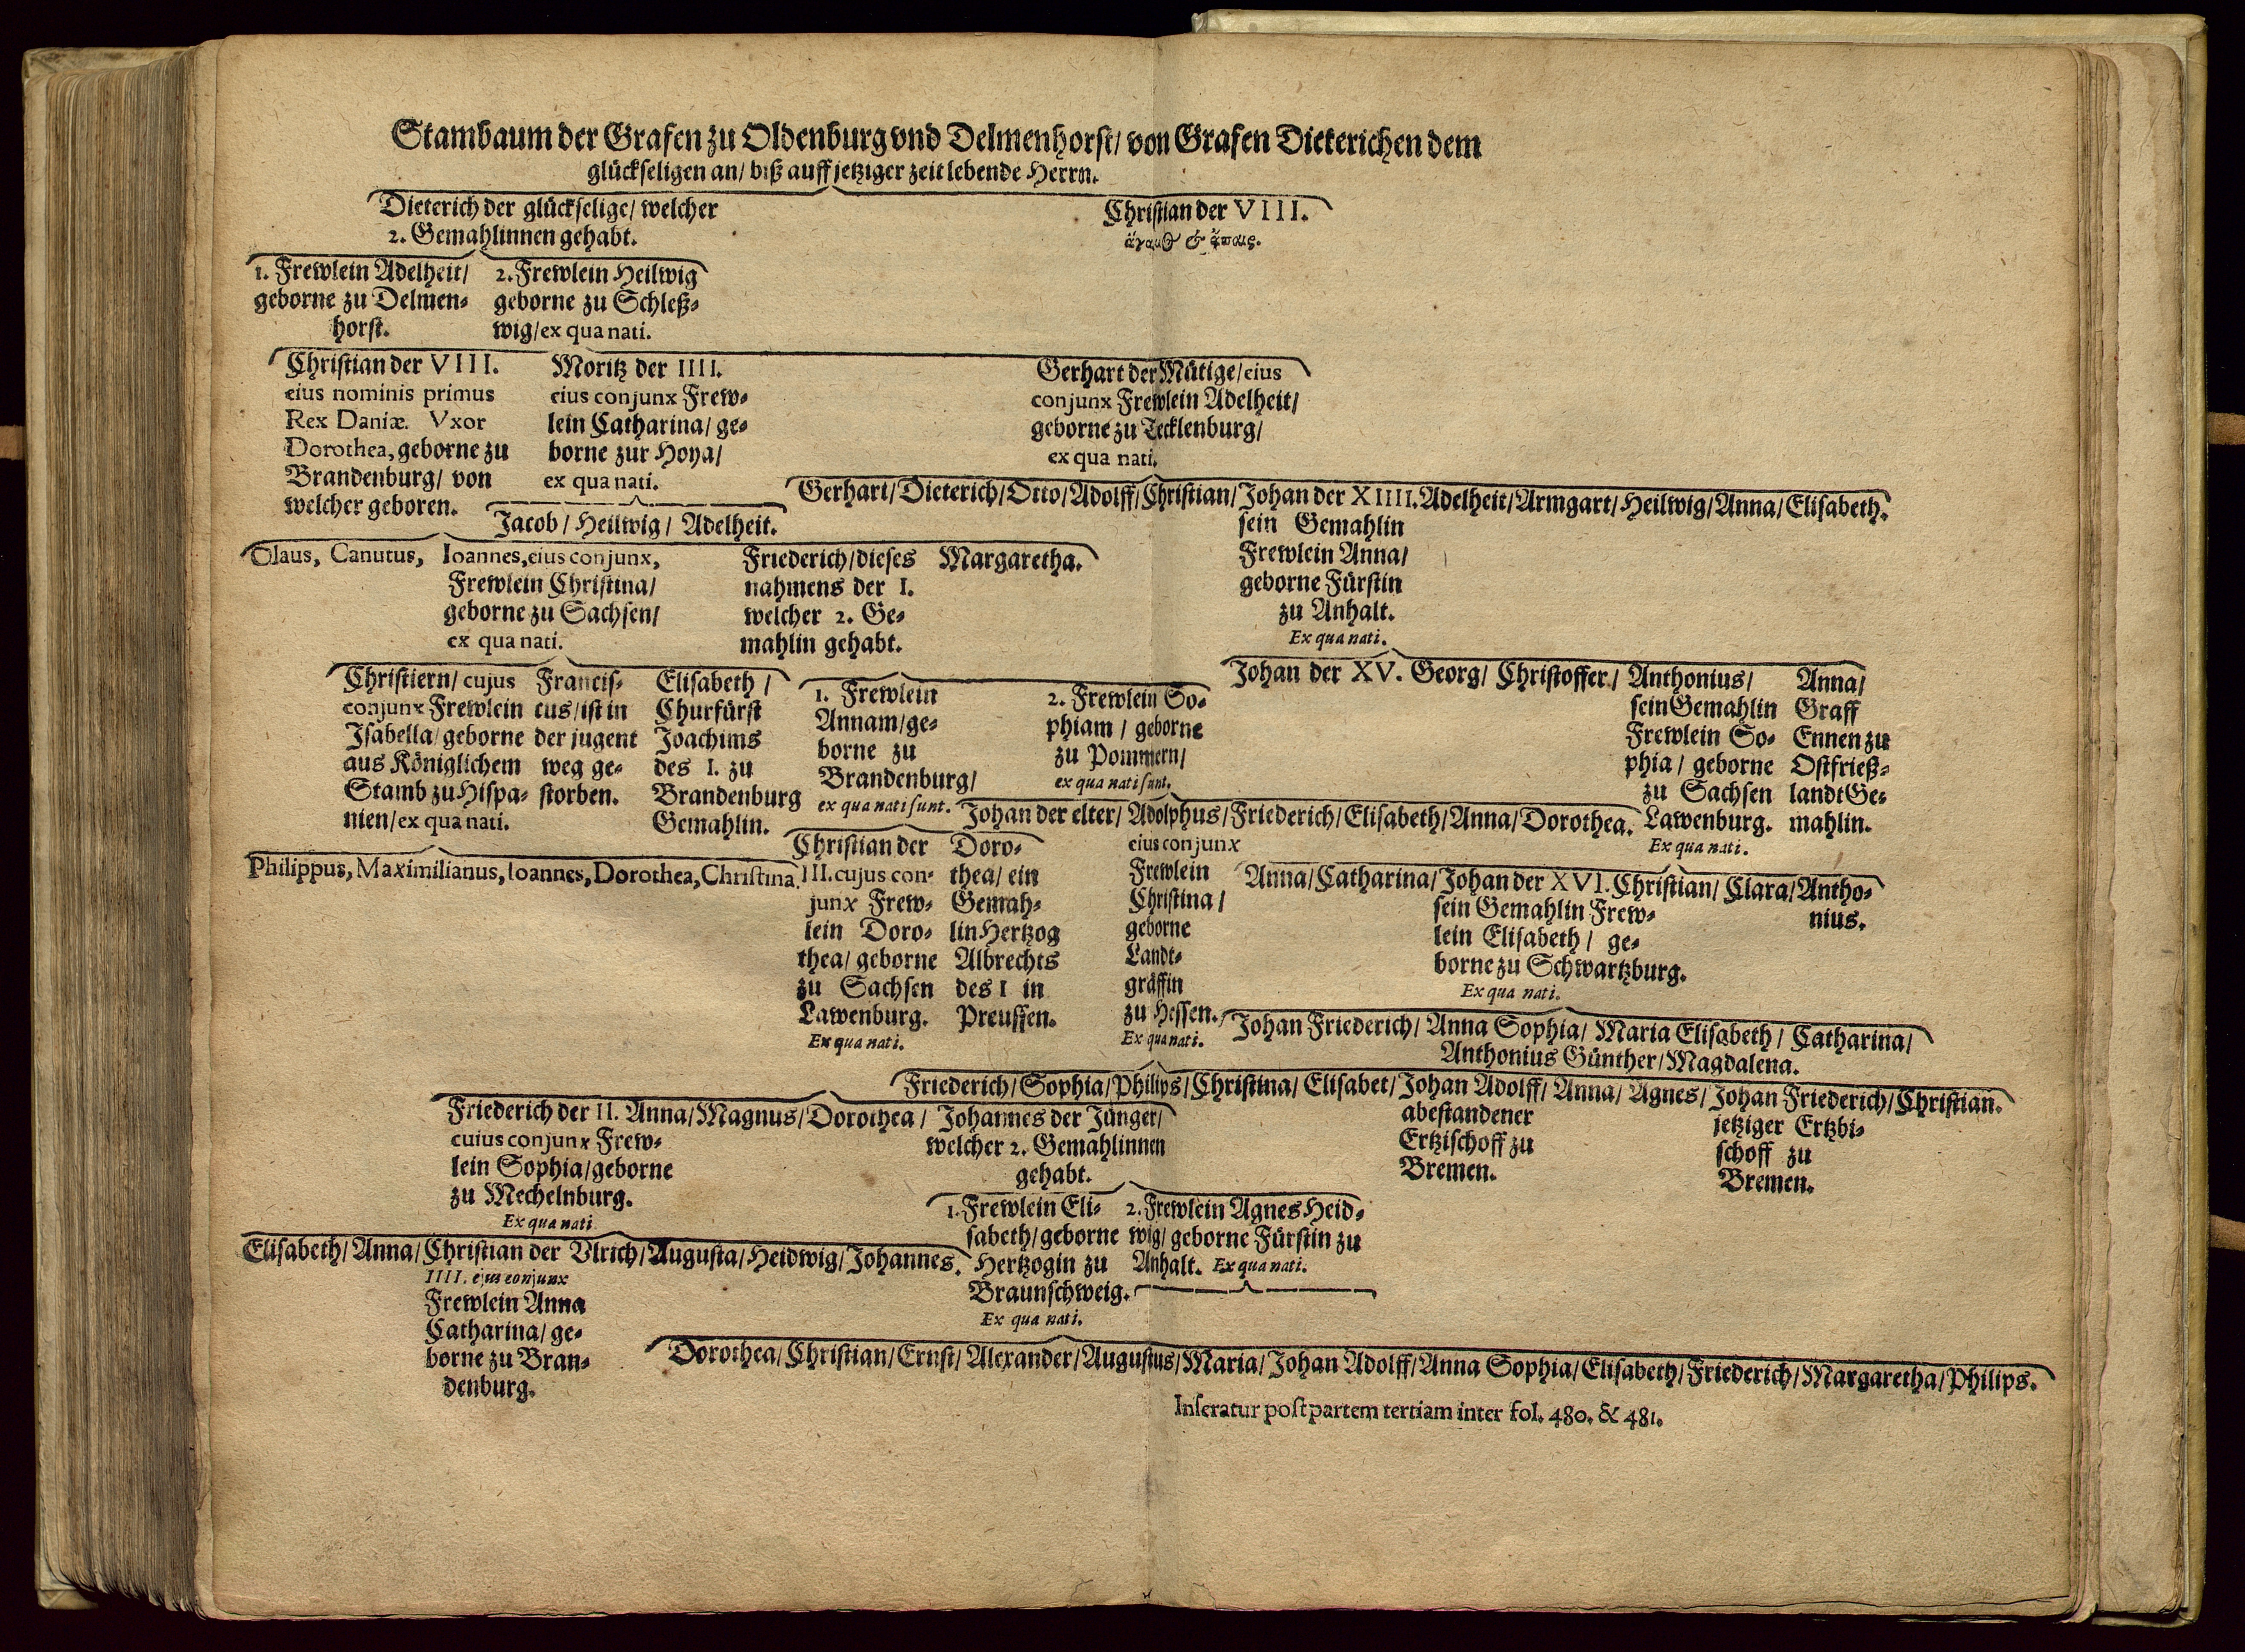 Stambaum der Grafen zu Oldenburg vnd Delmenhorst/ von Grafen Dieterichen dem
glückseligen an/ biß auff jetziger zeit lebende Herrn.
Dieterich der glückselige/ welcher
2. Gemahlinnen gehabt.
Christian der VIII.
ἄγαμος & ἄπαις.
1. Frewlein Adelheit/
geborne zu Delmen-
horst.
2. Frewlein Heilwig
geborne zu Schleß-
wig/ ex qua nati.
Christian der VIII.
eius nominis primus
Rex Daniæ. Vxor
Dorothea, geborne zu
Brandenburg/ von
welcher geboren.
Moritz der IIII.
eius conjunx Frew-
lein Catharina/ ge-
borne zur Hoya/
ex qua nati.
Gerhart der Mütige/ eius
conjunx Frewlein Adelheit/
geborne zu Tecklenburg/
ex qua nati.
Jacob/ Heilwig/ Adelheit.
Gerhart/ Dieterich/ Otto/ Adolff/ Christian/ Johan der XIIII. Adelheit/ Armgart/ Heilwig/ Anna/ Elisabeth.
sein Gemahlin
Frewlein Anna/
geborne Fürstin
zu Anhalt.
Ex qua nati.
Olaus, Canutus, Ioannes, eius conjunx,
Frewlein Christina/
geborne zu Sachsen/
ex qua nati.
Friederich/ dieses
nahmens der I.
welcher 2. Ge-
mahlin gehabt.
Margaretha.
Christiern/ cujus
conjunx Frewlein
Isabella/ geborne
aus Königlichem
Stamb zu Hispa-
nien/ ex qua nati.
Francis-
cus/ ist in
der jugent
weg ge-
storben.
Elisabeth/
Churfürst
Joachims
des I. zu
Brandenburg
Gemahlin.
1. Frewlein
Annam/ ge-
borne zu
Brandenburg/
ex qua nati sunt.
2. Frewlein So-
phiam/ geborne
zu Pommern/
ex qua nati sunt.
Johan der XV. Georg/ Christoffer/ Anthonius/
sein Gemahlin
Frewlein So-
phia/ geborne
zu Sachsen
Lawenburg.
Ex qua nati.
Anna/
Graff
Ennen zu
Ostfrieß-
landt Ge-
mahlin.
Johan der elter/ Adolphus/ Friederich/ Elisabeth/ Anna/ Dorothea.
eius conjunx
Frewlein
Christina/
geborne
Landt-
gräffin
zu Hessen.
Ex qua nati.
Philippus, Maximilianus, Ioannes, Dorothea, Christina.
Christian der
III. cujus con-
junx Frew-
lein Doro-
thea/ geborne
zu Sachsen
Lawenburg.
Ex qua nati.
Doro-
thea/ ein
Gemah-
lin Hertzog
Albrechts
des I in
Preussen.
Anna/ Catharina/ Johan der XVI. Christian/ Clara/ Antho-
nius.
sein Gemahlin Frew-
lein Elisabeth/ ge-
borne zu Schwartzburg.
Ex qua nati.
Johan Friederich/ Anna Sophia/ Maria Elisabeth/ Catharina/
Anthonius Günther/ Magdalena.
Friederich/ Sophia/ Philips/ Christina/ Elisabet/ Johan Adolff/ Anna/ Agnes/ Johan Friederich/ Christian.
abestandener
Ertzischoff zu
Bremen.
jetziger Ertzbi-
schoff zu
Bremen.
Friederich der II. Anna/ Magnus/ Dorothea/ Johannes der Jünger/
cuius conjunx Frew-
lein Sophia/ geborne
zu Mechelnburg.
Ex qua nati
welcher 2. Gemahlinnen
gehabt.
1. Frewlein Eli-
sabeth/ geborne
Hertzogin zu
Braunschweig.
Ex qua nati.
2. Frewlein Agnes Heid-
wig/ geborne Fürstin zu
Anhalt. Ex qua nati.
Elisabeth/ Anna/ Christian der Vlrich/ Augusta/ Heidwig/ Johannes.
IIII. ejus conjunx
Frewlein Anna
Catharina/ ge-
borne zu Bran-
denburg.
Dorothea/ Christian/ Ernst/ Alexander/ Augustus/ Maria/ Johan Adolff/ Anna Sophia/ Elisabeth/ Friederich/ Margaretha/ Philips.
Inseratur post partem tertiam inter fol. 480. & 481.